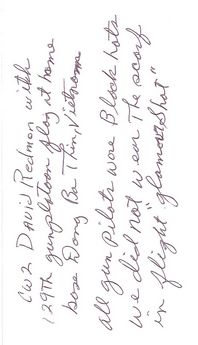 CW2 David Redmon with
129th gunplatoon flag at home
base Dong Ba Thin, Vietnam
All gun pilots wore Black hats
we did not wear the scarf
in flight "glamour shot"